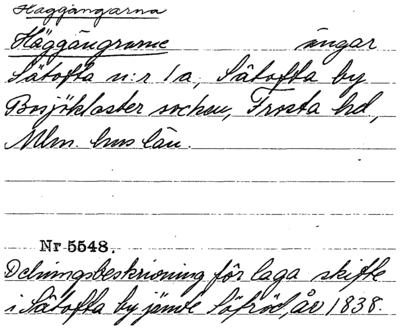 Häggångarna
Häggångrarne ängar
Sätofta n:r 1a, Sätofta by
Bosjökloster socken, Frosta hd,
Mlm. hus län.
Nr 5548.
Delningsbeskrivning för laga skifte
i Sätofta by jämte Söfröd, år 1838.